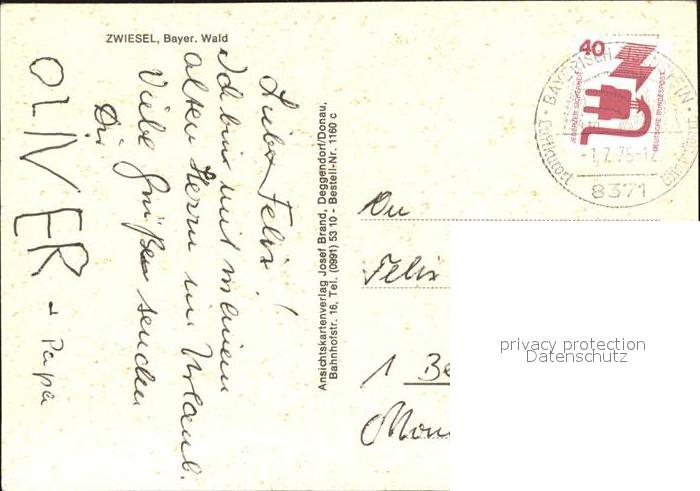 ZWIESEL, Bayer. Wald
Lieber Felix!
Ich bin mit meinem
alten Herrn im Urlaub.
Viele Grüße senden
Dir
OLIVER + Papa
Ansichtskartenverlag Josef Brand, Deggendorf/Donau,
Bahnhofstr. 16, Tel. (0991) 53 10 - Bestell-Nr. 1160 c
40
JEDERZEIT SICHERHEIT
DEUTSCHE BUNDESPOST
-1.7.75-12
8371
An
Felix
1 Be
privacy protection
Datenschutz